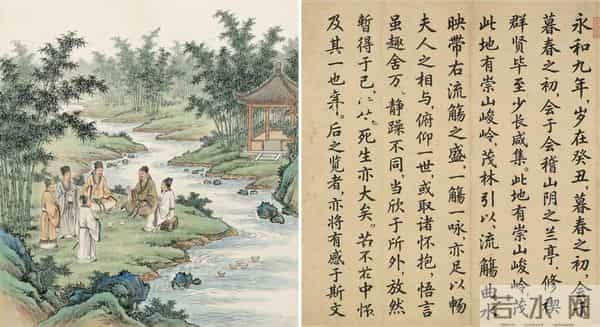 永和九年,岁在癸丑,暮春之初,会
暮春之初,会于会稽山阴之兰亭,修禊
群贤毕至少长咸集。此地有崇山峻岭茂
此地有崇山峻岭,茂林引以,流觞曲水
映带右流觞之盛,一觞一咏,亦足以畅
夫人之相与,俯仰一世,或取诸怀抱,悟言
虽趣舍万。静躁不同,当欣于所外,放然
暂得于己,死生亦大矣。不在中怀
及其一也。后之览者,亦将有感于斯文